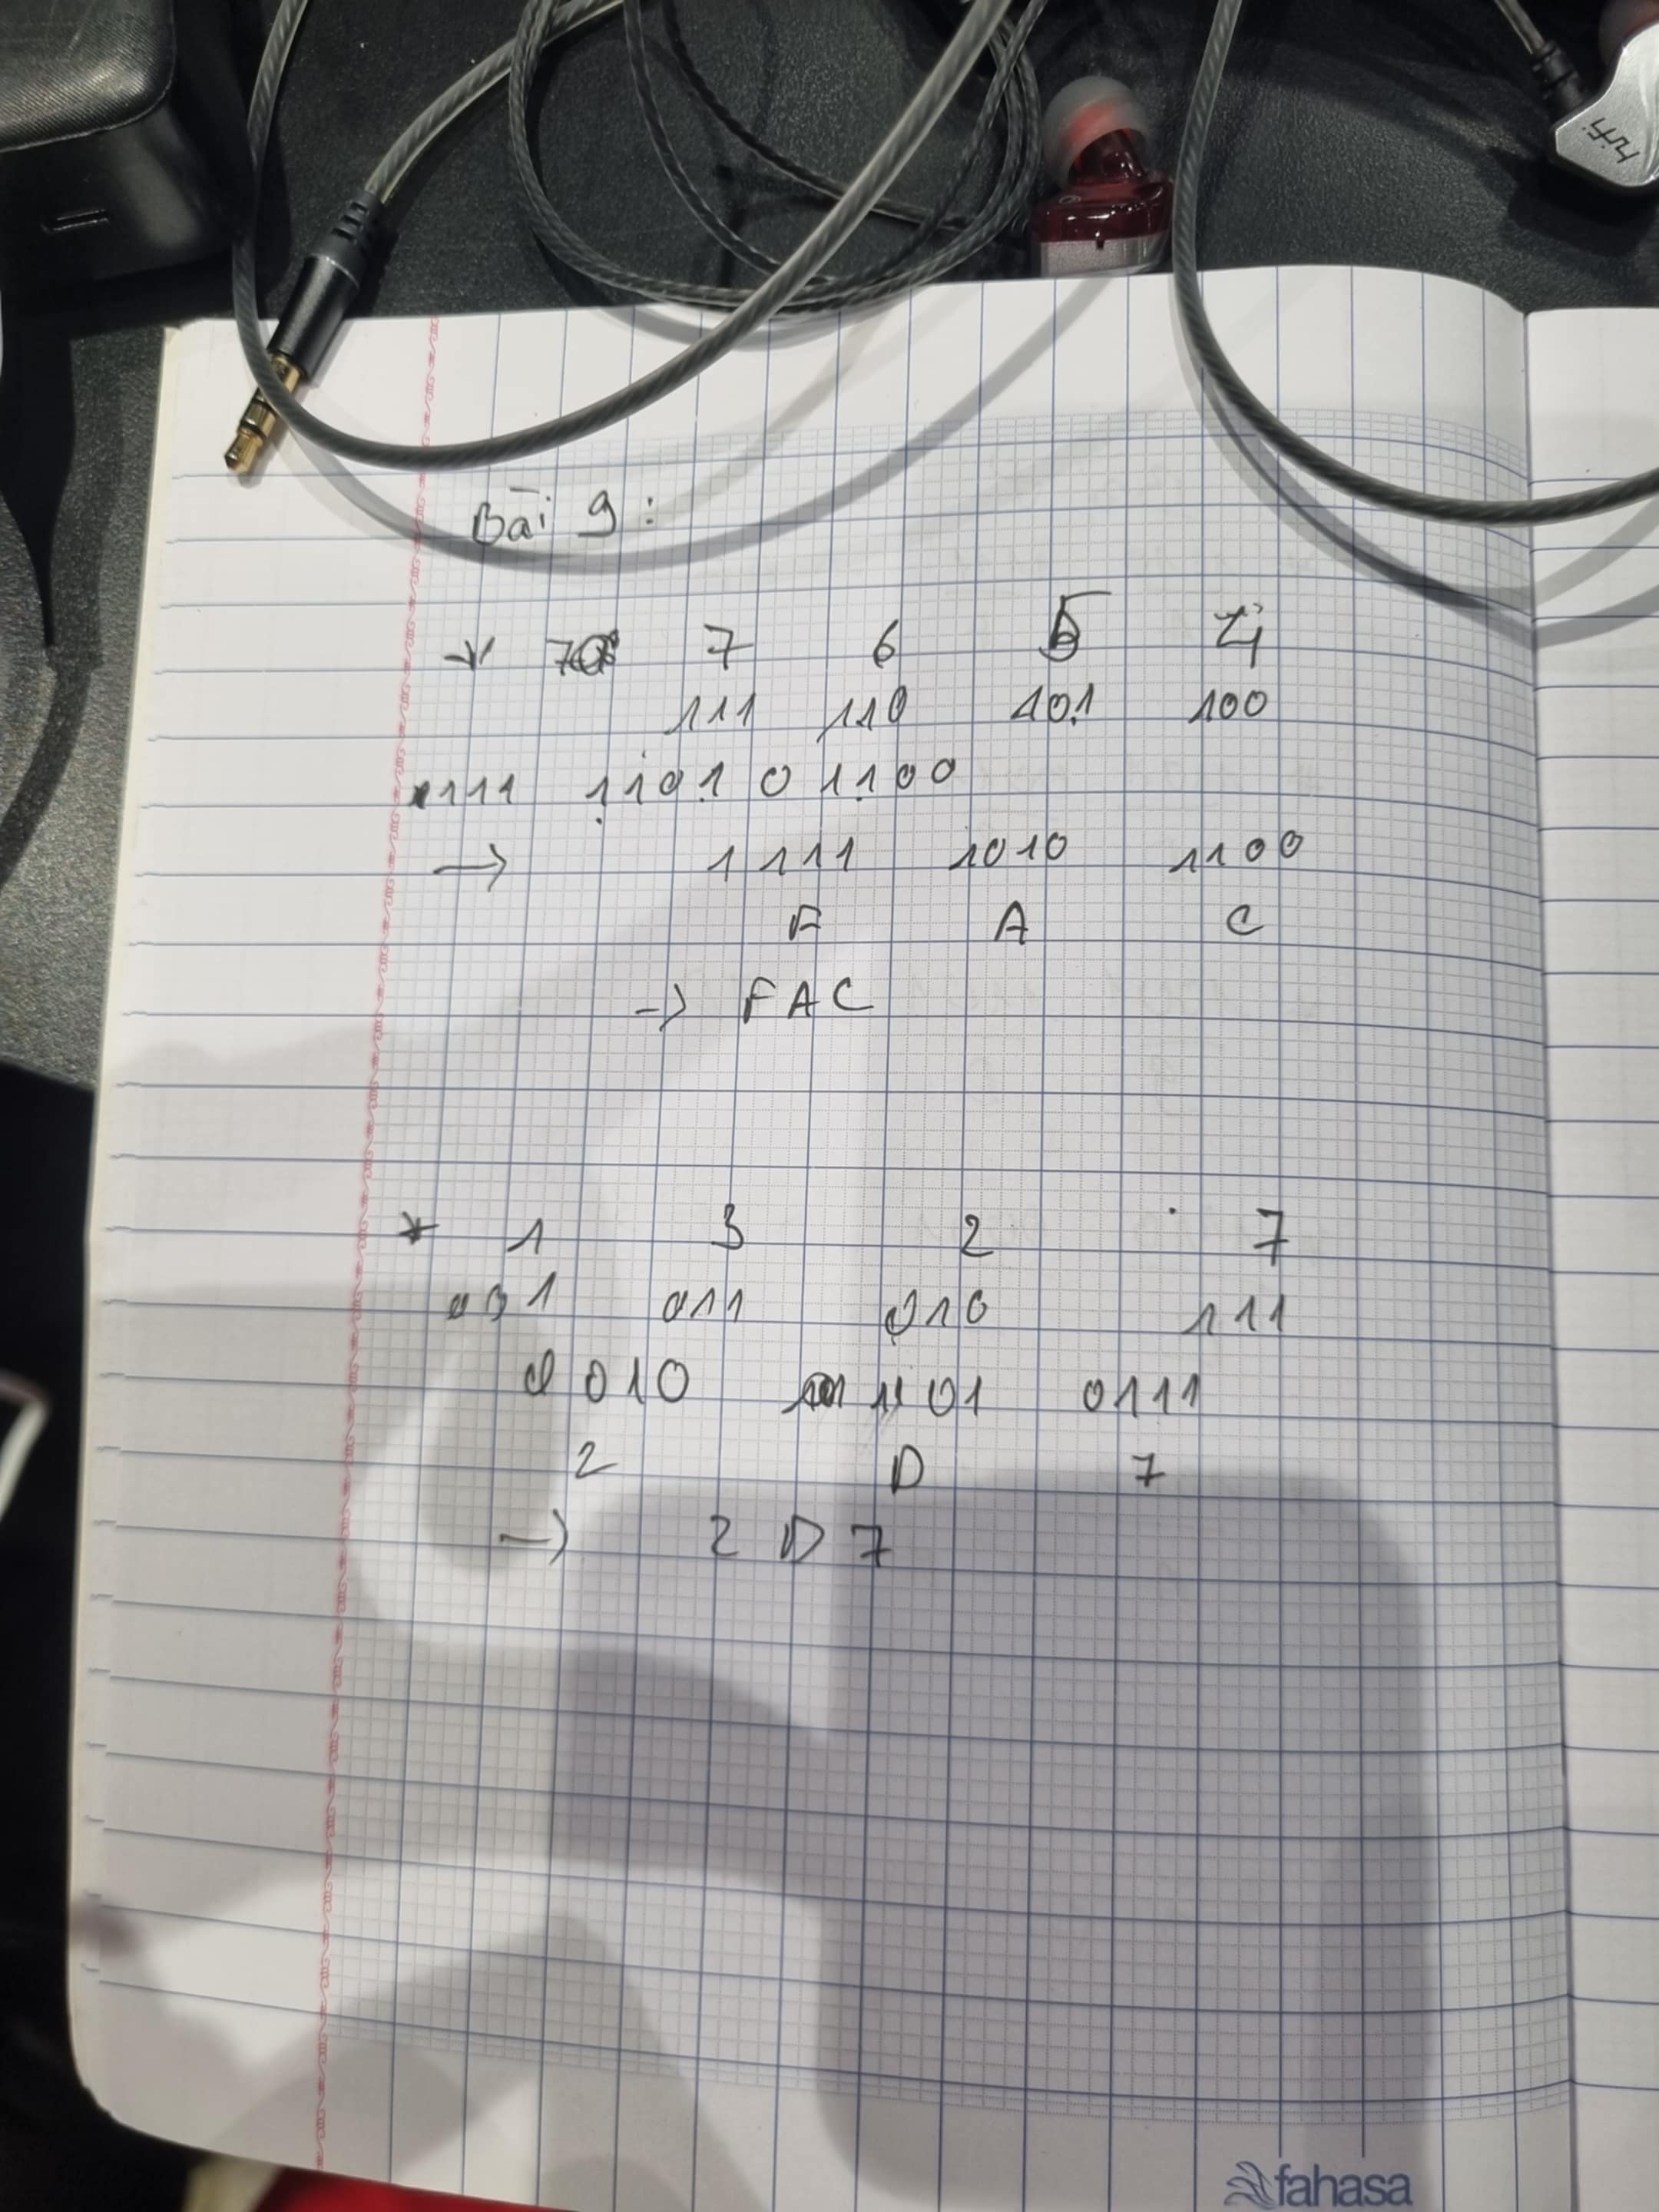 hifi
Bài 9:
* 7 6 5 4
111 110 101 100
1111 1101 0 1100
→ 1111 1010 1100
F A C
→ FAC
* 1 3 2 7
001 011 010 111
0010 1101 0111
2 D 7
→ 2 D 7
fahasa